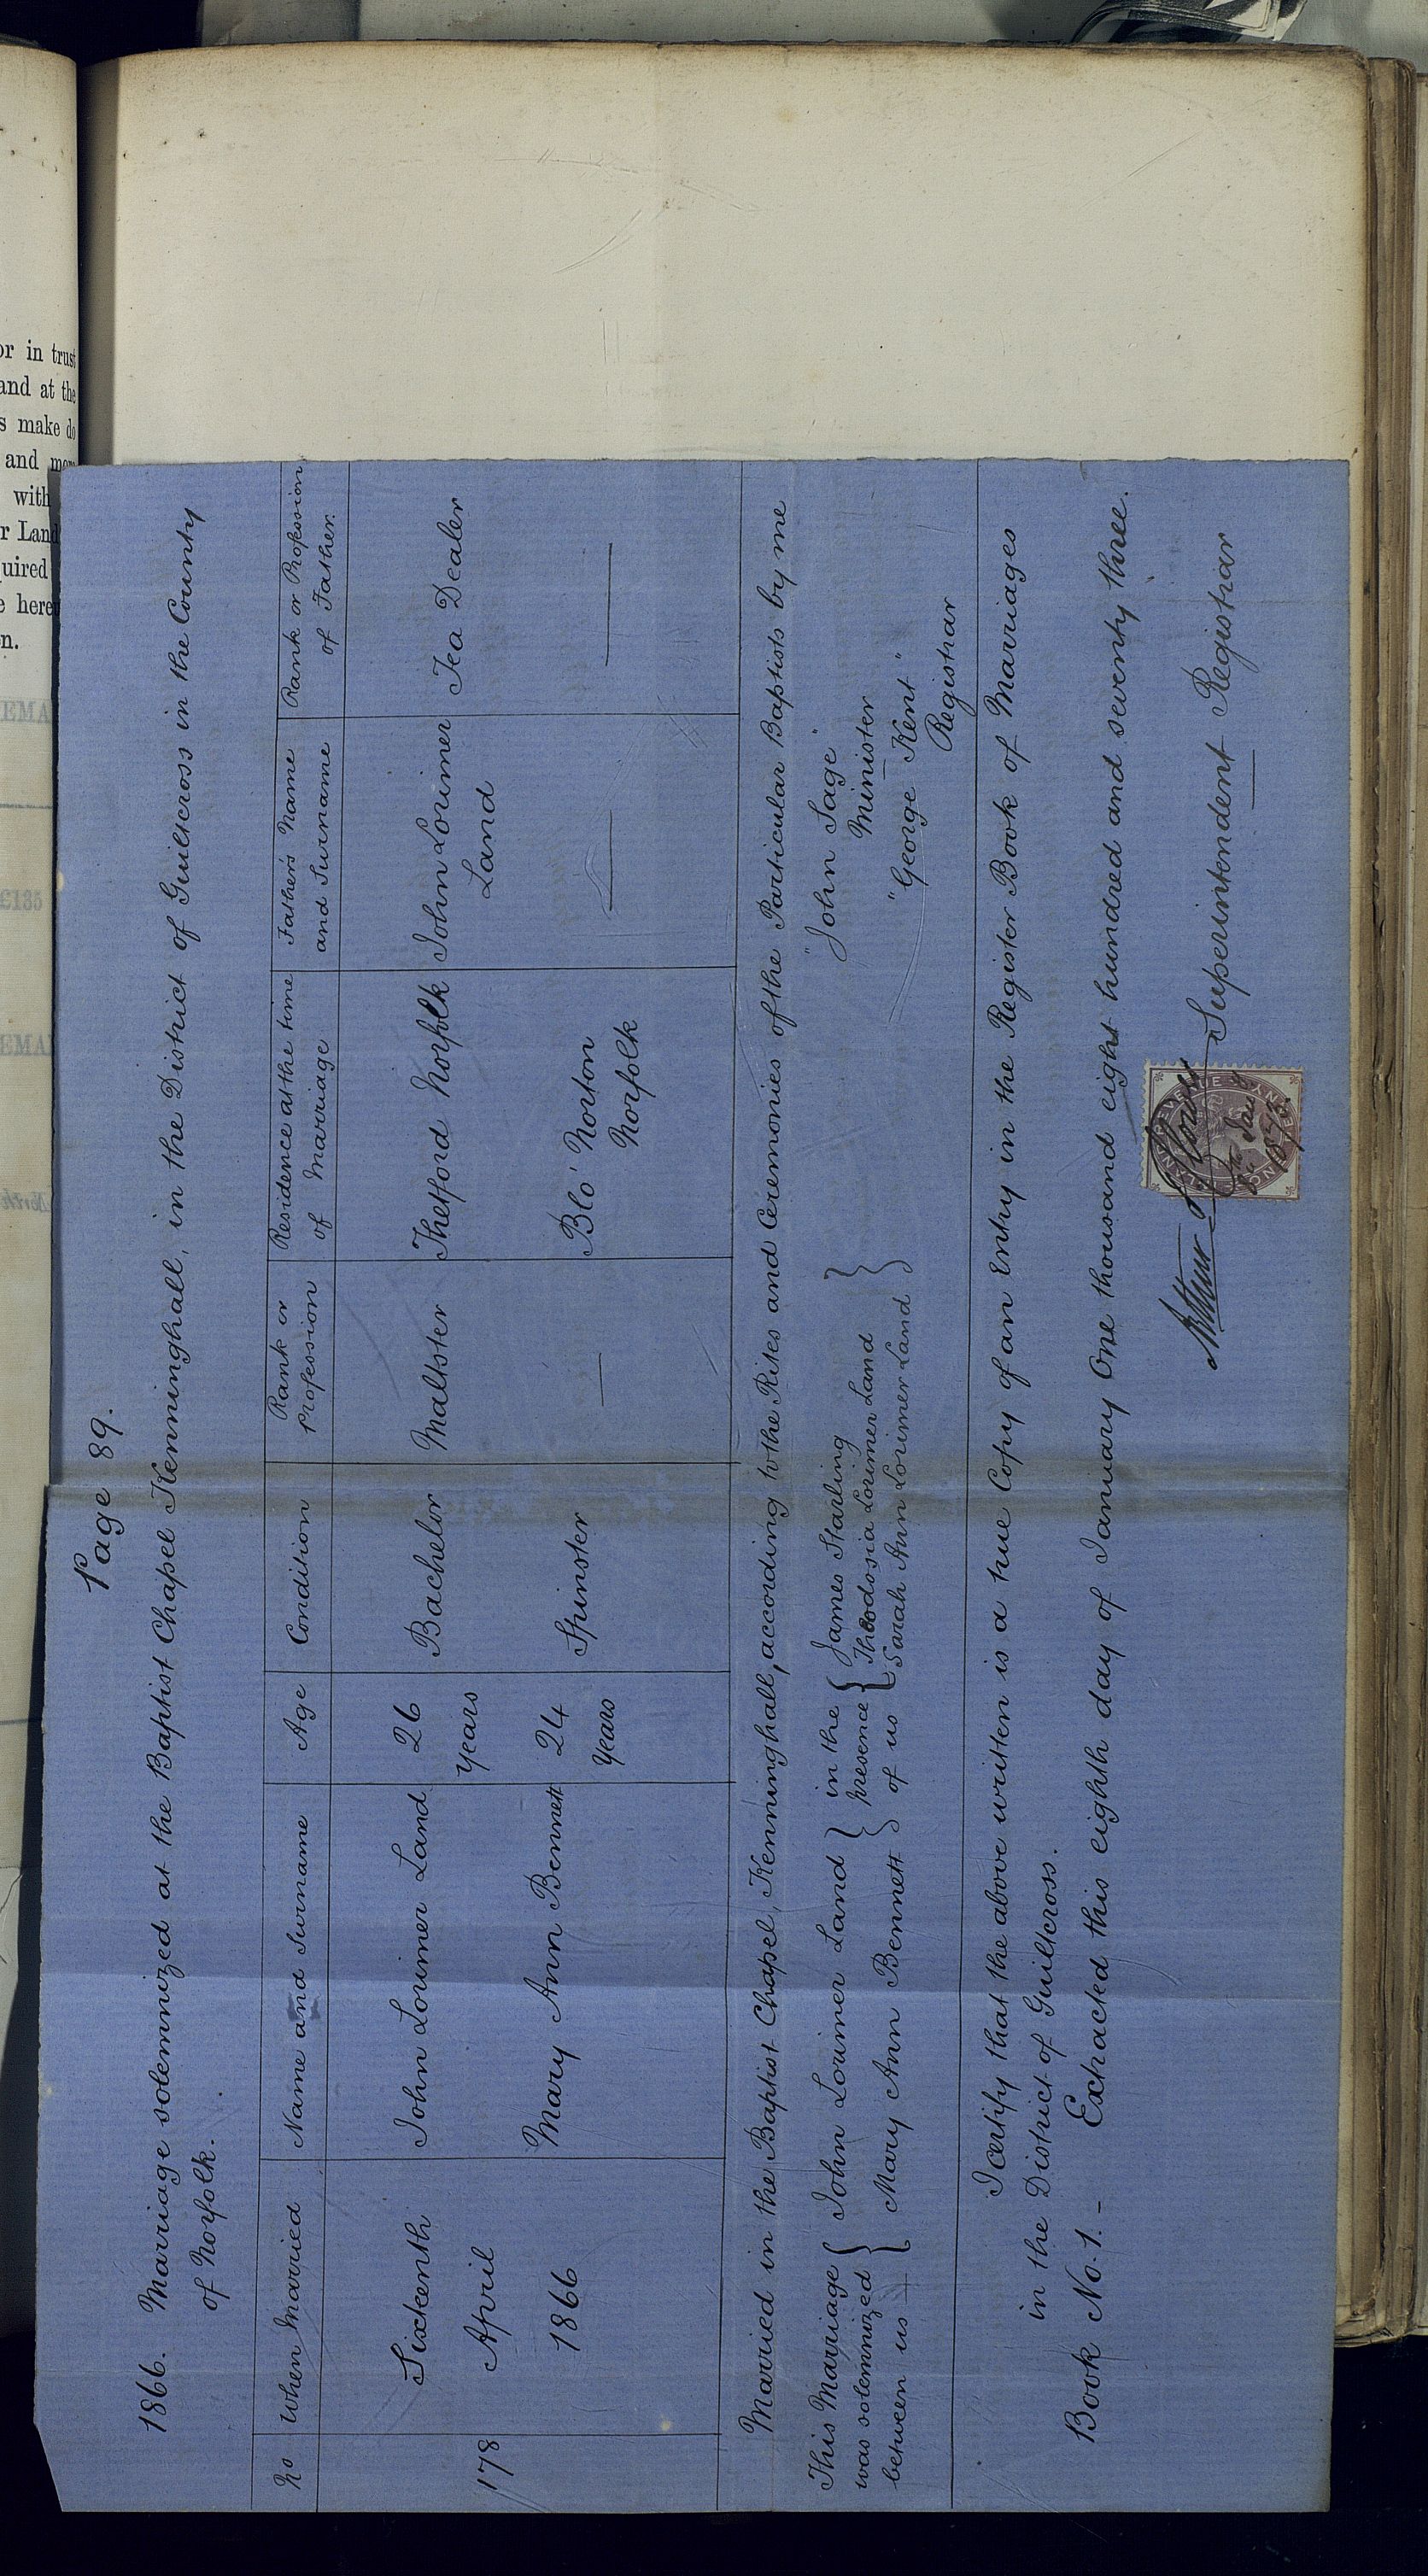 or in trust
and at the
s make do
and
with
r Land
uired
e here
n.
£135
Page 89.
1866. Marriage solemnized at the Baptist Chapel Kenninghall, in the District of Guiltcross in the County
of Norfolk.
No
When Married
Name and Surname
Age
Condition
Rank or
Profession
Residence at the time
of Marriage
Father's Name
and Surname
Rank or Profession
of Father.
178
Sixteenth
April
1866
John Lorimer Land
26
years
Bachelor
Maltster
Thetford Norfolk
John Lorimer
Land
Tea Dealer
Mary Ann Bennett
24
years
Spinster
—
Blo' Norton
Norfolk
—
—
Married in the Baptist Chapel, Kenninghall, according to the Rites and Ceremonies of the Particular Baptists by me
This Marriage
was solemnized
between us
John Lorimer Land
Mary Ann Bennett
in the
presence
of us
James Starling
Theodosia Lorimer Land
Sarah Ann Lorimer Land
"John Sage"
Minister
"George Kent"
Registrar
I certify that the above written is a true Copy of an Entry in the Register Book of Marriages
in the District of Guiltcross.
Book No. 1. – Extracted this eighth day of January One thousand eight hundred and seventy three.
Superintendent Registrar
8th Jan
1873